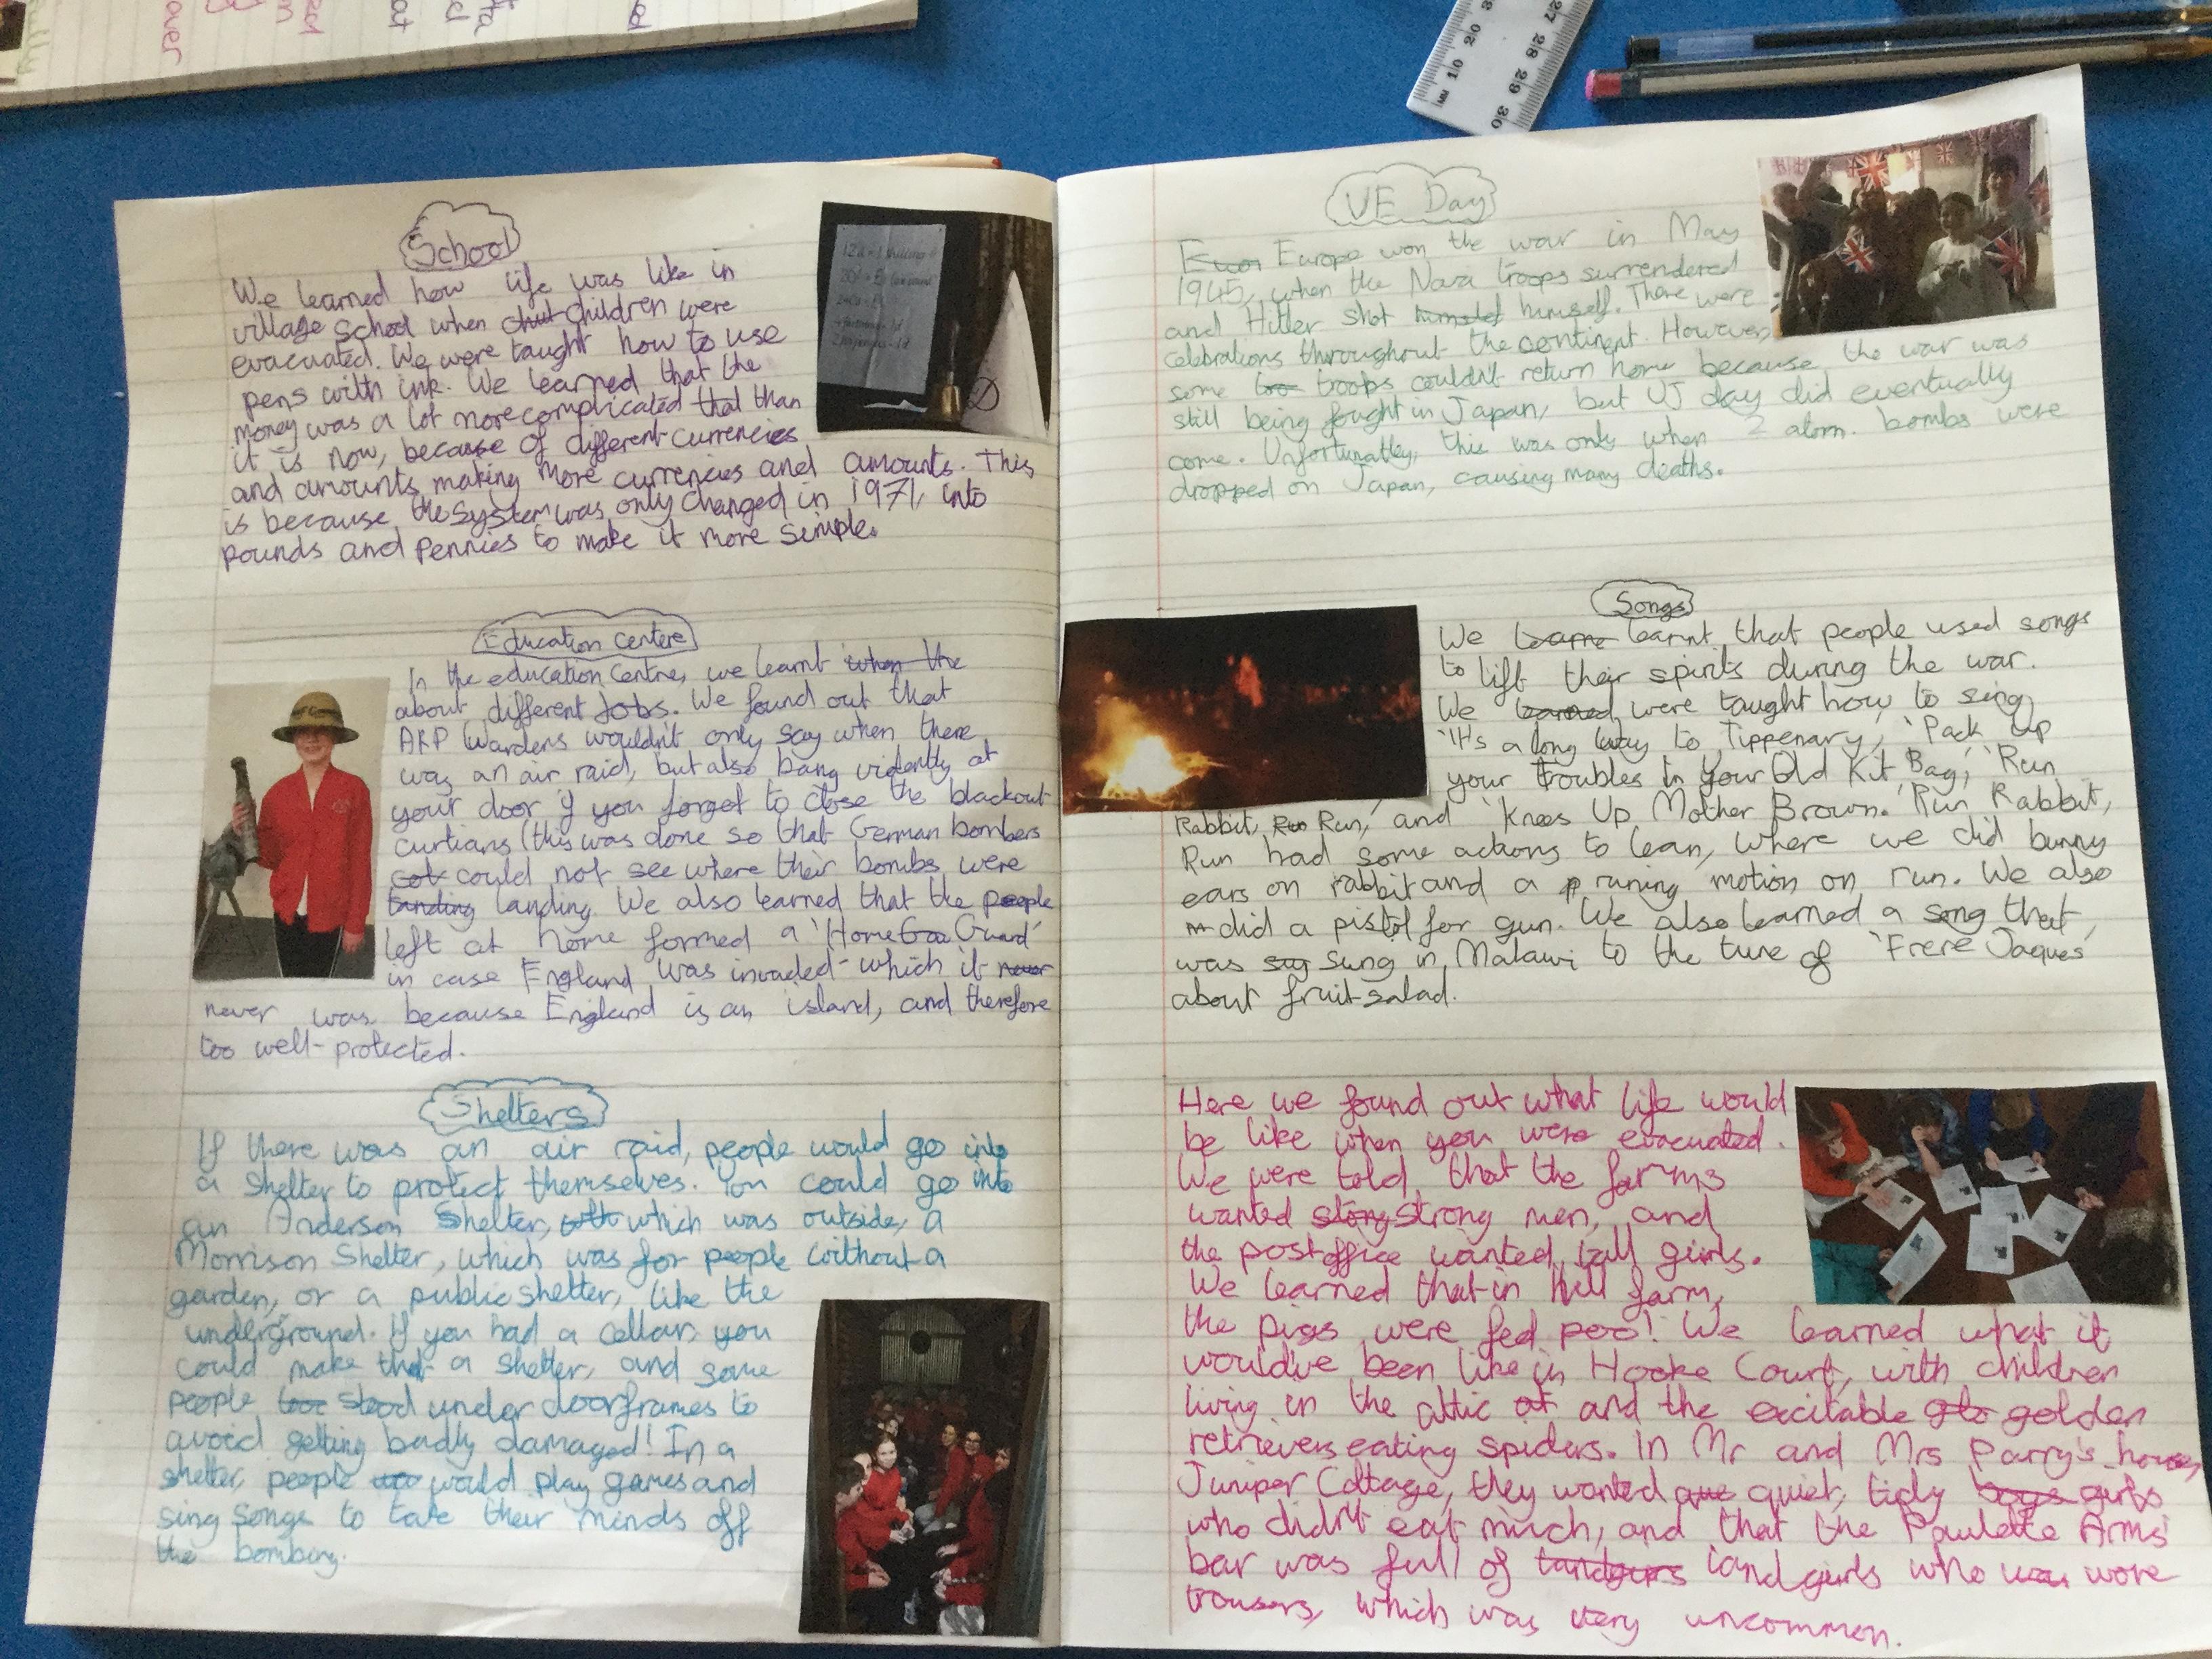 School
We learned how life was like in
village school when chut children were
evacuated. We were taught how to use
pens with ink. We learned that the
money was a lot more complicated that than
it is now, because of different currencies
and amounts making more currencies and amounts. This
is because the system was only changed in 1971, into
pounds and pennies to make it more simple.
Education Centre
In the education Centre, we learnt when the
about different Jobs. We found out that
ARP Wardens wouldn't only say when there
was an air raid, but also bang violently at
your door if you forget to close the blackout
curtians (this was done so that German bombers
cot could not see where their bombs were
landing landing. We also learned that the people
left at home formed a 'Home Gau Guard'
in case England was invaded - which it never
never was because England is an island, and therefore
too well-protected.
Shelters
If there was an air raid, people would go into
a shelter to protect themselves. You could go into
an Anderson Shelter, which was outside, a
Morrison Shelter, which was for people without a
garden, or a public shelter, like the
underground. If you had a cellar, you
could make that a shelter, and some
people stood under doorframes to
avoid getting badly damaged! In a
shelter, people would play games and
sing songs to take their minds off
the bombing.
VE Day
Europe won the war in May
1945, when the Nazi troops surrendered
and Hitler shot himself. There were
celebrations throughout the continent. However,
some troops couldn't return home because the war was
still being fought in Japan, but VJ day did eventually
come. Unfortunatley, this was only when 2 atom. bombs were
dropped on Japan, causing many deaths.
Songs
We learnt that people used songs
to lift their spirits during the war.
We learned were taught how to sing
'It's a long way to Tippenary,' 'Pack up
your troubles in your Old Kit Bag,' 'Run
Rabbit, Run Run,' and 'Knees Up Mother Brown.' Run Rabbit,
Run had some actions to lean, where we did bunny
ears on rabbit and a runing motion on run. We also
did a pistol for gun. We also learned a song that
was sung in Malawi to the tune of 'Frere Jaques'
about fruit salad.
Here we found out what life would
be like when you were evacuated.
We were told that the farms
wanted stong strong men, and
the post office wanted tall girls.
We learned that in hill farm,
the pigs were fed poo! We learned what it
would've been like in Hooke Court, with children
living in the attic at and the excitable golden
retrievers eating spiders. In Mr and Mrs Parry's house,
Juniper Cottage, they wanted que quiet, tidy boys girls
who didn't eat much, and that the Paulette Arms
bar was full of landgurs landgirls who wore
trousers, which was very uncommon.